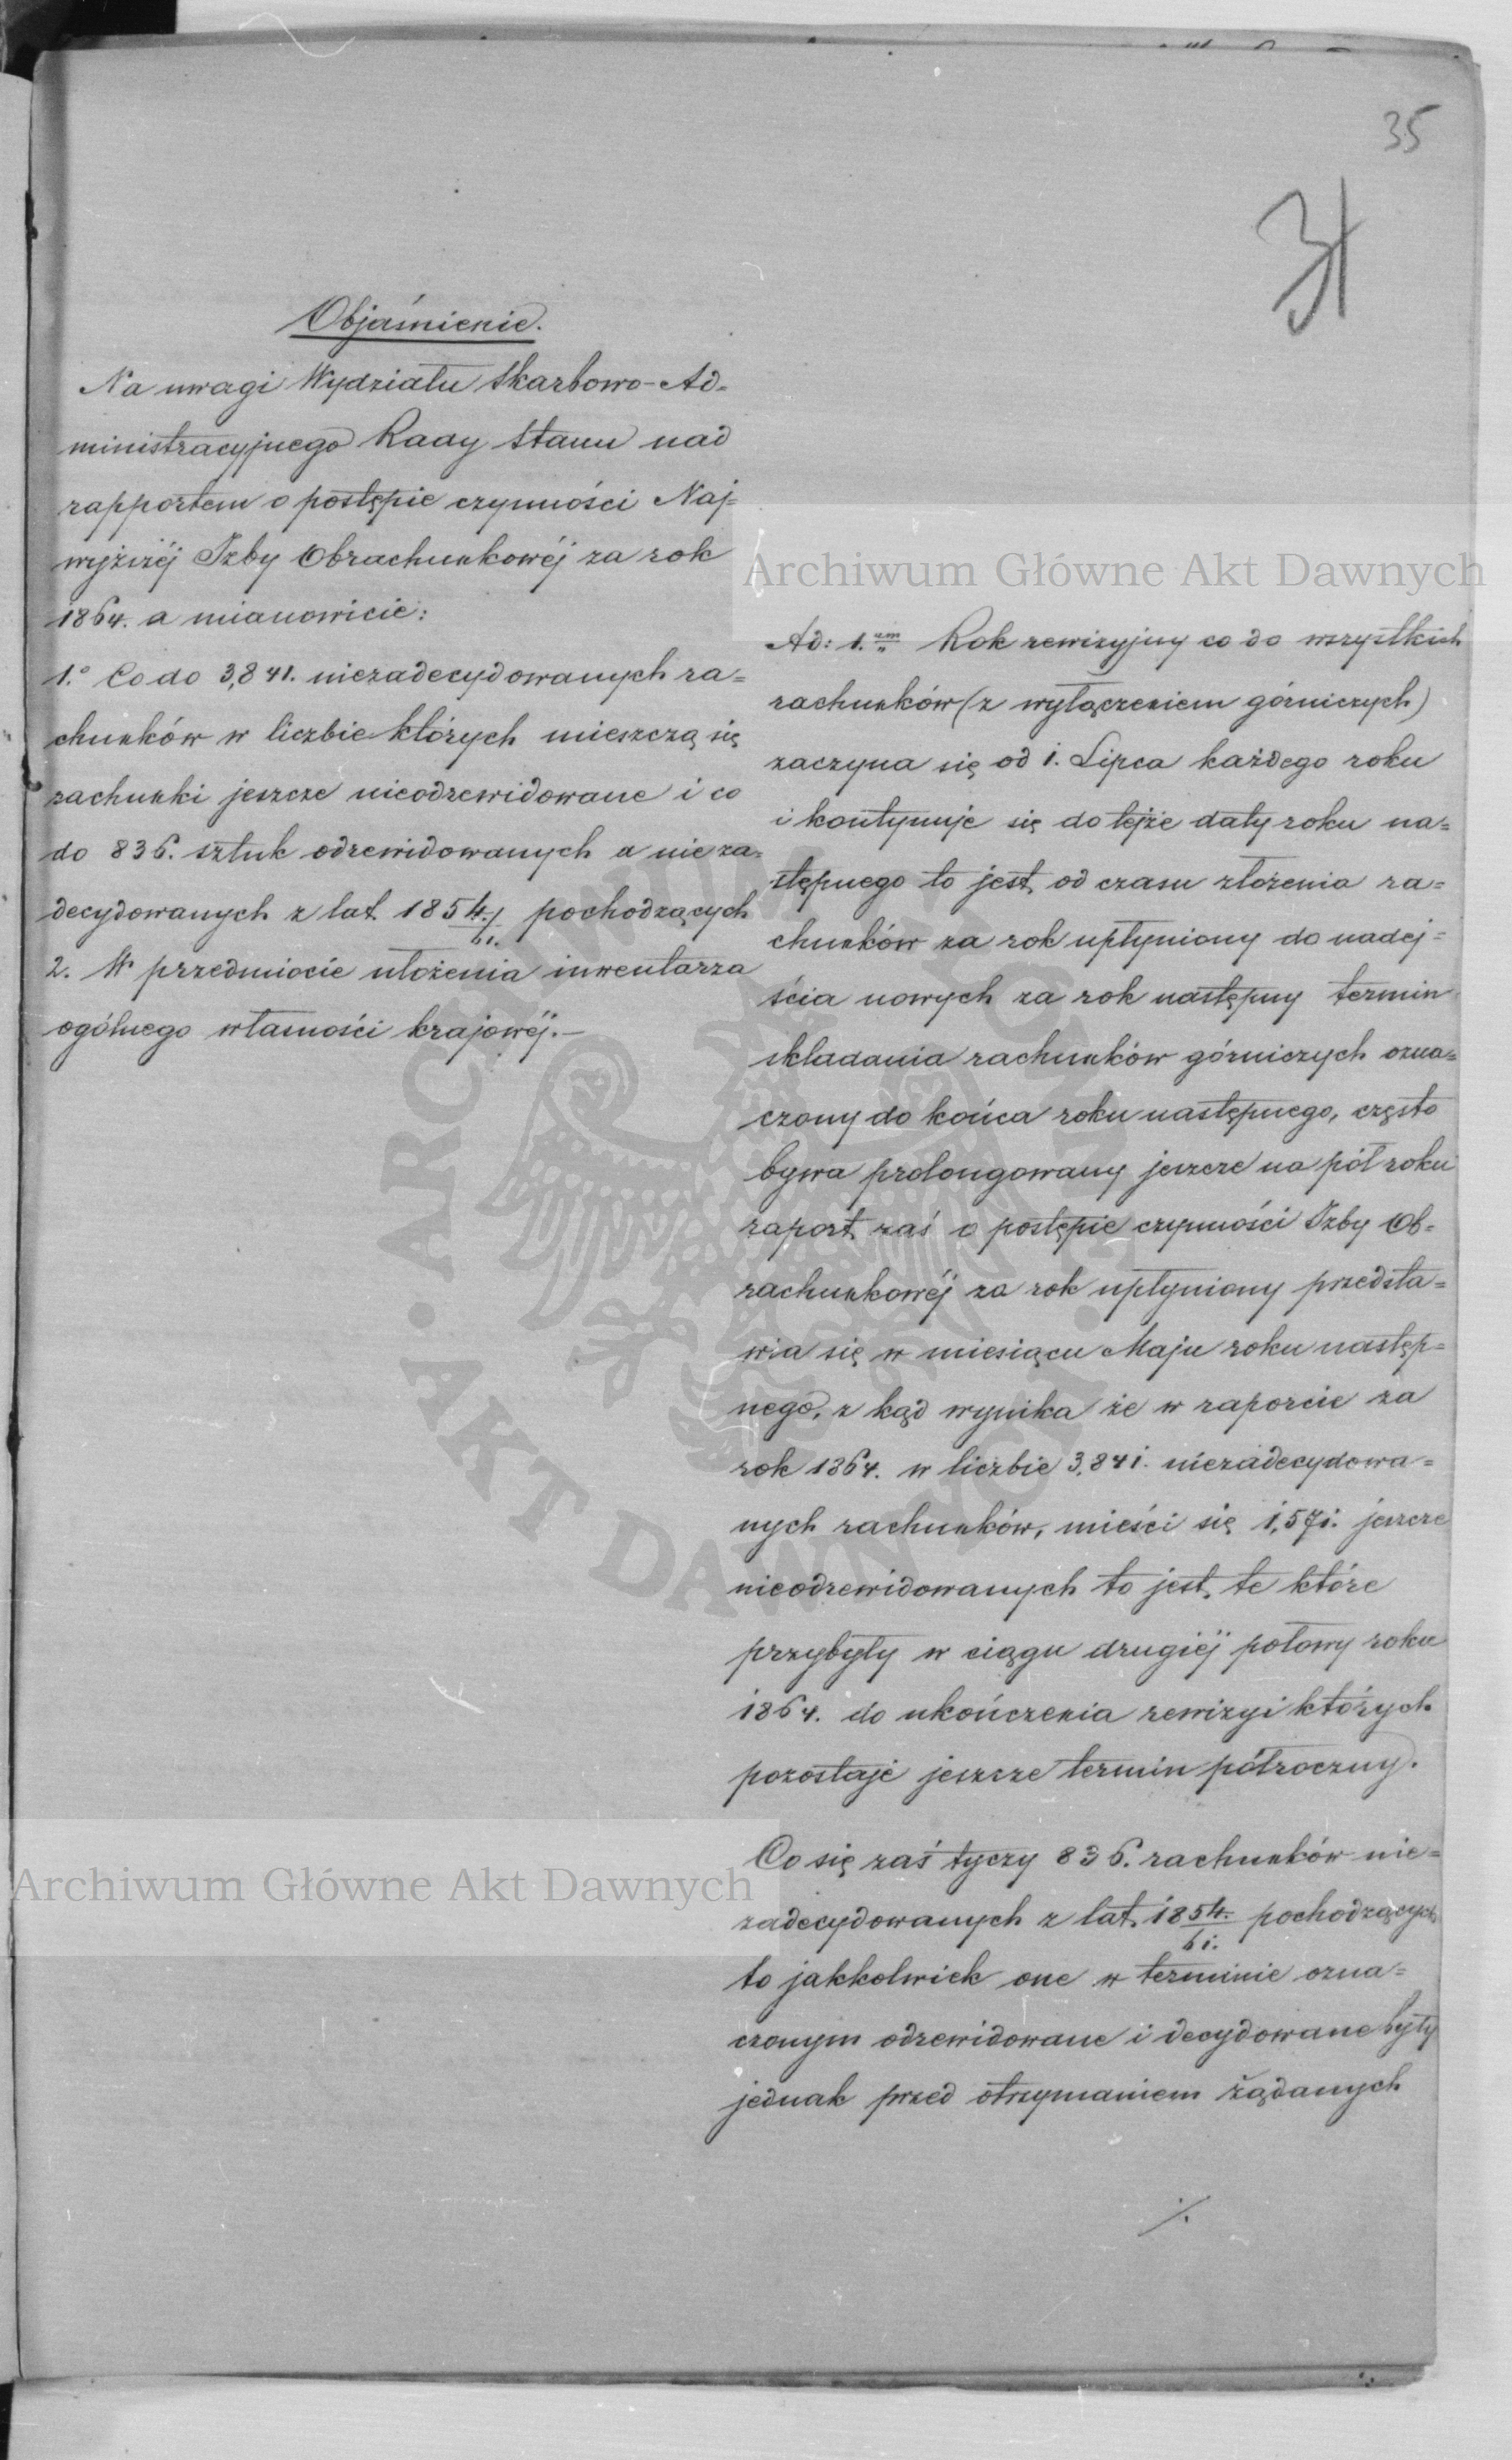 35
31
Objaśnienie.
Na uwagi Wydziału Skarbowo-Ad=
ministracyjnego Rady Stanu nad
rapportem o postępie czynności Naj=
wyższéj Izby Obrachunkowéj za rok
1864. a mianowicie:
1.° Co do 3,841. niezadecydowanych ra=
chunków w liczbie których mieszczą się
rachunki jeszcze nieodrewidowane i co
do 836. sztuk odrewidowanych a nieza=
decydowanych z lat 1854/61. pochodzących
2. W przedmiocie ułożenia inwentarza
ogólnego własności krajowéj.—
Ad: 1.um Rok rewizyjny co do wszystkich
rachunków (z wyłączeniem górniczych)
zaczyna się od 1. Lipca każdego roku
i kontynuje się do tejże daty roku na=
stępnego to jest, od czasu złożenia ra=
chunków za rok upłyniony do nadej=
ścia nowych za rok następny termin
składania rachunków górniczych ozna=
czony do końca roku następnego, często
bywa prolongowany jeszcze na pół roku
raport zaś o postępie czynności Izby Ob=
rachunkowéj za rok upłyniony przedsta=
wia się w miesiącu Maju roku następ=
nego, z kąd wynika że w raporcie za
rok 1864. w liczbie 3,841. niezadecydowa=
nych rachunków, mieści się 1,571. jeszcze
nieodrewidowanych to jest, te które
przybyły w ciągu drugiéj połowy roku
1864. do ukończenia rewizyi których
pozostaje jeszcze termin półroczny.
Co się zaś tyczy 836. rachunków nie=
zadecydowanych z lat 1854/61. pochodzących
to jakkolwiek one w terminie ozna=
czonym odrewidowane i decydowane były
jednak przed otrzymaniem żądanych
./.
Archiwum Główne Akt Dawnych
Archiwum Główne Akt Dawnych